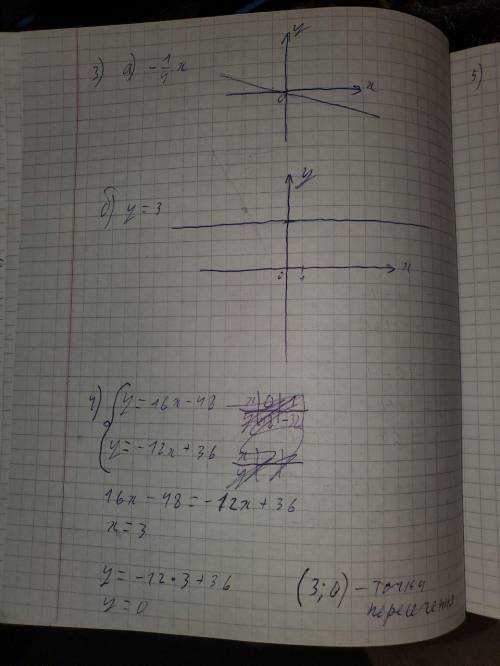 3) а) -1/4 x
y
x
0
б) y = 3
y
x
0 1
4) { y = 16x - 48
y = -12x + 36
16x - 48 = -12x + 36
x = 3
y = -12 · 3 + 36
y = 0
(3; 0) - точка
пересечения
5)